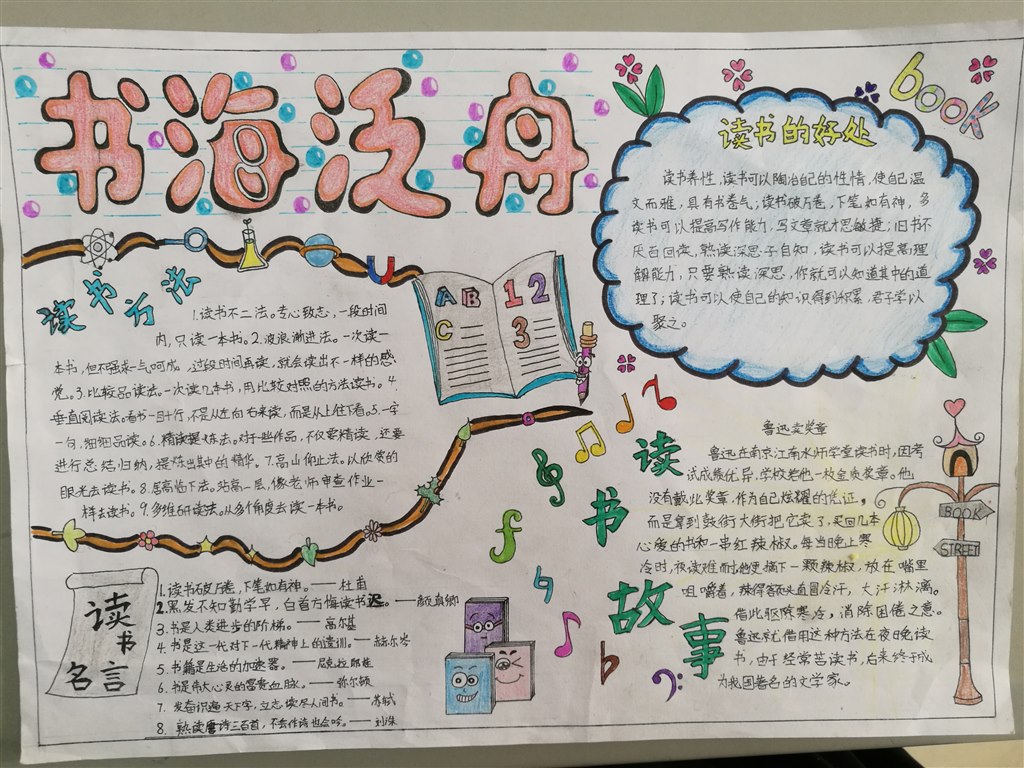 书海泛舟
BOOK
读书的好处
读书养性,读书可以陶冶自己的性情,使自己温
文而雅,具有书卷气;读书破万卷,下笔如有神,多
读书可以提高写作能力,写文章就才思敏捷;旧书不
厌百回读,熟读深思子自知,读书可以提高理
解能力,只要熟读深思,你就可以知道其中的道
理了;读书可以使自己的知识得到积累,君子学以
聚之。
读书方法
1.读书不二法。专心致志,一段时间
内,只读一本书。2.波浪渐进法。一次读一
本书,但不强求一点呵成,过段时间再读,就会读出不一样的感
觉。3.比较品读法。一次读几本书,用比较对照的方法读书。4.
垂直阅读法。看书一目十行,不是从左向右来读,而是从上往下看。5.一字
一句,细细品读。6.精读提炼法。对于一些作品,不仅要精读,还要
进行总结归纳,提炼出其中的精华。7.高山仰止法。以欣赏的
眼光去读书。8.居高临下法。站高一层,像老师审查作业一
样去读书。9.多维研读法。从多个角度去读一本书。
A B
C
1 2
3
读书故事
鲁迅卖奖章
鲁迅在南京江南水师学堂读书时,因考
试成绩优异,学校给他一枚金质奖章。他
没有戴此奖章,作为自己炫耀的凭证,
而是拿到鼓街大街把它卖了,买回几本
心爱的书和一串红辣椒。每当晚上寒
冷时,夜读难耐,他便摘下一颗辣椒,放在嘴里
咀嚼着,辣得额头直冒冷汗,大汗淋漓。
借此驱除寒冷,消除困倦之意。
鲁迅就借用这种方法在夜晚读
书,由于经常苦读书,后来终于成
为我国著名的文学家。
BOOK
STREET
读书名言
1.读书破万卷,下笔如有神。——杜甫
2.黑发不知勤学早,白首方悔读书迟。——颜真卿
3.书是人类进步的阶梯。——高尔基
4.书是这一代对下一代精神上的遗训。——赫尔岑
5.书籍是生活的加速器。——尼克拉耶娃
6.书是伟大心灵的富贵血脉。——弥尔顿
7.发奋识遍天下字,立志读尽人间书。——苏轼
8.熟读唐诗三百首,不会作诗也会吟。——刘洙